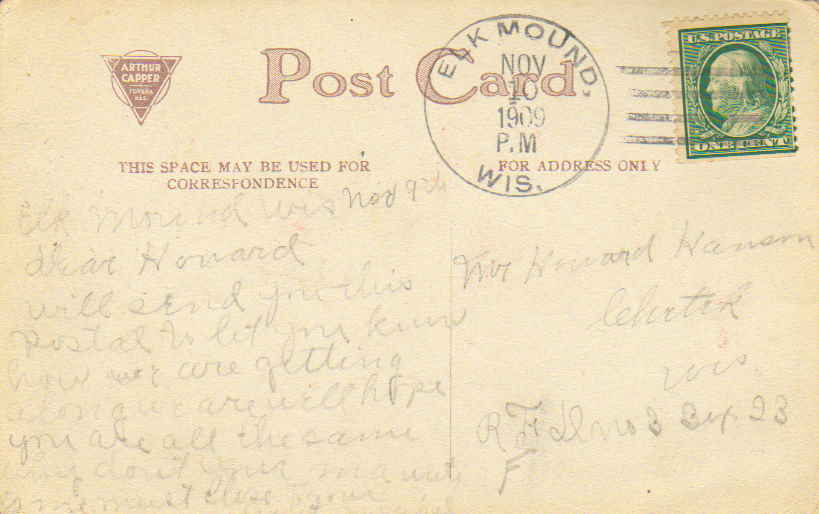 ARTHUR
CAPPER
TOPEKA
KAS.
Post Card
ELK MOUND,
NOV
10
1909
P.M
WIS.
U.S. POSTAGE
ONE CENT
THIS SPACE MAY BE USED FOR
CORRESPONDENCE
FOR ADDRESS ONLY
Elk Mound Wis Nov 9th
Dear Howard
will send you this
postal to let you know
how we are getting
along we are well hope
you are all the same
why don't your ma
me must close
Mr Howard Hanson
Chetek
Wis.
R F D no 3 23
F